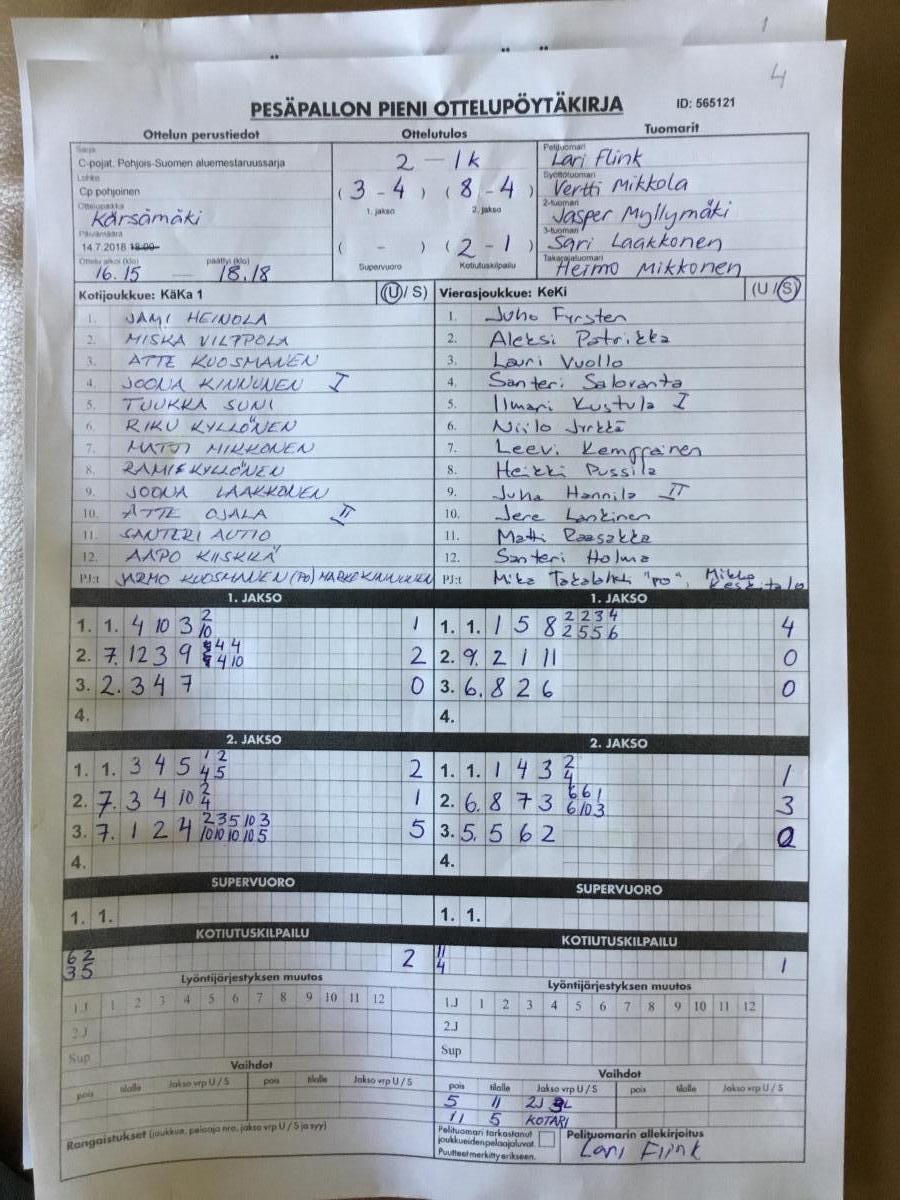 1
4
PESÄPALLON PIENI OTTELUPÖYTÄKIRJA ID: 565121
Ottelun perustiedot Ottelutulos Tuomarit
Sarja
C-pojat. Pohjois-Suomen aluemestaruussarja
Lohko
Cp pohjoinen
Ottelupaikka
Kärsämäki
Päivämäärä
14.7.2018 18:00
Ottelu alkoi (klo) päättyi (klo)
16.15 — 18.18
2 - 1k
(3 - 4) (8 - 4)
1. jakso 2. jakso
( - ) (2 - 1)
Supervuoro Kotiutuskilpailu
Pelituomari
Lari Flink
Syöttötuomari
Vertti Mikkola
2-tuomari
Jasper Myllymäki
3-tuomari
Sari Laakkonen
Takarajatuomari
Heimo Mikkonen
Kotijoukkue: KäKa 1 (U / S)
1. JAMI HEINOLA
2. MISKA VILPPOLA
3. ATTE KUOSMANEN
4. JOONA KINNUNEN I
5. TUUKKA SUNI
6. RIKU KYLLÖNEN
7. MATTI MIKKONEN
8. RAMI KYLLÖNEN
9. JOONA LAAKKONEN
10. ATTE OJALA II
11. SANTERI AUTIO
12. AAPO KIISKILÄ
PJ:t JARMO KUOSMANEN (PO) MARKO KINNUNEN
Vierasjoukkue: KeKi (U / S)
1. Juho Fyrsten
2. Aleksi Patrikka
3. Lauri Vuollo
4. Santeri Saloranta
5. Ilmari Kustula I
6. Niilo Jyrkkä
7. Leevi Kemppainen
8. Heikki Pussila
9. Juha Hannila II
10. Jere Lankinen
11. Matti Raasakka
12. Santeri Holma
PJ:t Mika "PO", Mikko Keskitalo
1. JAKSO
1. 1. 4 10 3 2/10 1
2. 7. 12 3 9 4 4 / 4 10 2
3. 2. 3 4 7 0
4.
1. JAKSO
1. 1. 1 5 8 2 2 3 4 / 2 5 5 6 4
2. 9. 2 1 11 0
3. 6. 8 2 6 0
4.
2. JAKSO
1. 1. 3 4 5 1 2 / 4 5 2
2. 7. 3 4 10 2/4 1
3. 7. 1 2 4 2 3 5 10 3 / 10 10 10 10 5 5
4.
2. JAKSO
1. 1. 1 4 3 2/4 1
2. 6. 8 7 3 6 6 1 / 6 10 3 3
3. 5. 5 6 2 0
4.
SUPERVUORO
1. 1.
SUPERVUORO
1. 1.
KOTIUTUSKILPAILU
6 2 / 3 5 2
KOTIUTUSKILPAILU
11/4 1
Lyöntijärjestyksen muutos
1.J 1 2 3 4 5 6 7 8 9 10 11 12
2.J
Sup
Lyöntijärjestyksen muutos
1.J 1 2 3 4 5 6 7 8 9 10 11 12
2.J
Sup
Vaihdot
pois tilalle Jakso vrp U / S pois tilalle Jakso vrp U / S
Vaihdot
pois tilalle Jakso vrp U / S pois tilalle Jakso vrp U / S
5 11 2J
11 5 KOTARI
Rangaistukset (joukkue, pelaaja nro, jakso vrp U / S ja syy)
Pelituomari tarkastanut
joukkueidenpelaajaluvat.
Puutteet merkitty erikseen.
Pelituomarin allekirjoitus
Lari Flink